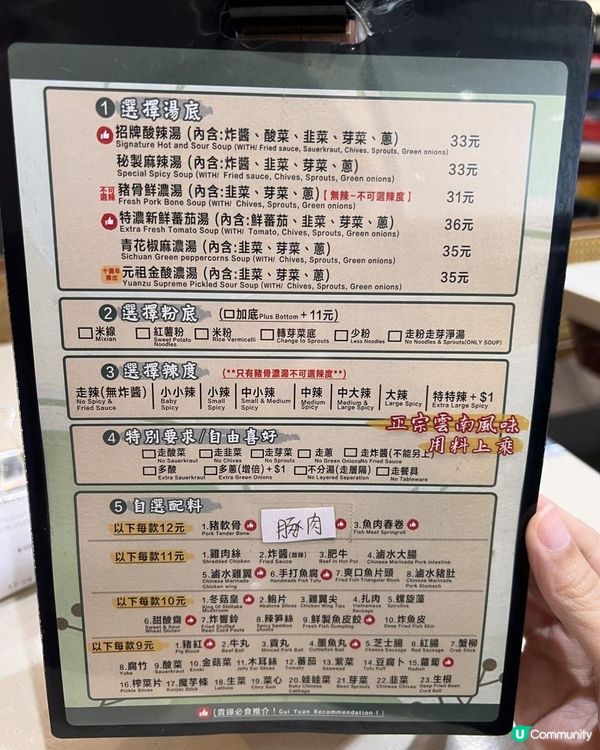 1 選擇湯底
招牌酸辣湯 (內含:炸醬、酸菜、韭菜、芽菜、蔥) 33元
Signature Hot and Sour Soup (WITH/ Fried sauce, Sauerkraut, Chives, Sprouts, Green onions)
秘製麻辣湯 (內含:炸醬、韭菜、芽菜、蔥) 33元
Special Spicy Soup (WITH/ Fried sauce, Chives, Sprouts, Green onions)
不可選辣 豬骨鮮濃湯 (內含:韭菜、芽菜、蔥)【無辣-不可選辣度】 31元
Fresh Pork Bone Soup (WITH/ Chives, Sprouts, Green onions)
特濃新鮮蕃茄湯 (內含:鮮蕃茄、韭菜、芽菜、蔥) 36元
Extra Fresh Tomato Soup (WITH/ Tomato, Chives, Sprouts, Green onions)
青花椒麻濃湯 (內含:韭菜、芽菜、蔥) 35元
Sichuan Green peppercorns Soup (WITH/ Chives, Sprouts, Green onions)
十週年推出 元祖金酸濃湯 (內含:韭菜、芽菜、蔥) 35元
Yuanzu Supreme Pickled Sour Soup (WITH/ Chives, Sprouts, Green onions)
2 選擇粉底 (口加底 Plus Bottom + 11元)
米線 紅薯粉 米粉 轉芽菜底 少粉 走粉走芽淨湯
Mixian Sweet Potato Noodles Rice Vermicelli Change to Sprouts Less Noodles No Noodles & Sprouts(ONLY SOUP)
3 選擇辣度 (**只有豬骨濃湯不可選辣度**)
走辣(無炸醬) 小小辣 小辣 中小辣 中辣 中大辣 大辣 特特辣 + $1
No Spicy & Fried Sauce Baby Spicy Small Spicy Small & Medium Spicy Medium Spicy Medium & Large Spicy Large Spicy Extra Large Spicy
4 特別要求/自由喜好
正宗雲南風味
用料上乘
走酸菜 走韭菜 走芽菜 走蔥 走炸醬(不能另上
No Sauerkraut No Chives No Sprouts No Green Onions No Fried Sauce
多酸 多蔥(增倍) + $1 不分湯(走層隔) 走餐具
Extra Sauerkraut Extra Green Onions No Layered Seperation No Tableware
5 自選配料
以下每款12元 1.豬軟骨 豚肉 3.魚肉春卷
Pork Tender Bone Fish Meat Springroll
以下每款11元 1.雞肉絲 2.炸醬(微辣) 3.肥牛 4.滷水大腸
Shredded Chicken Fried Sauce Beef In Hot Pot Chinese Marinade Pork intestine
5.滷水雞翼 6.手打魚腐 7.爽口魚片頭 8.滷水豬肚
Chinese Marinade Chicken wing Handmade Fish Tofu Fried Fish Triangular Block Chinese Marinade Pork Stomach
以下每款10元 1.冬菇皇 2.鮑片 3.雞翼尖 4.扎肉 5.螺旋藻
King Of Shiitake Mushroom Abalone Slices Chicken Wing Tips Vietnamese Sausage Spirulina
6.甜酸齋 7.炸響鈴 8.辣筍絲 9.鮮製魚皮餃 10.炸魚皮
Sweet & Sour Wheat Gluten Fried Stuffed Bean Curd Paste Spicy bamboo shoots Fresh Fish Dumpling Deep Fried Fish Skin
以下每款9元 1.豬紅 2.牛丸 3.貢丸 4.墨魚丸 5.芝士腸 6.紅腸 7.蟹柳
Pig Blood Beef Ball Minced Pork Ball Cuttlefish Ball Cheese Sausage Red Sausage Crab Stick
8.腐竹 9.酸菜 10.金菇菜 11.木耳絲 12.蕃茄 13.紫菜 14.豆腐卜 15.蘿蔔
Yuba Sauerkraut Enoki Jelly Ear Slices Tomato Seaweed Tofu Puff Radish
16.榨菜片 17.魔芋條 18.生菜 19.菜心 20.娃娃菜 21.芽菜 22.韭菜 23.生根
Pickle Slices Konjac Stick Lettuce Choy Sum Baby Chinese Cabbage Bean Sprouts Chinese Chives Deep Fried Bean Curd Ball
(貴緣必食推介! Gui Yuan Recommendation!)
U Community